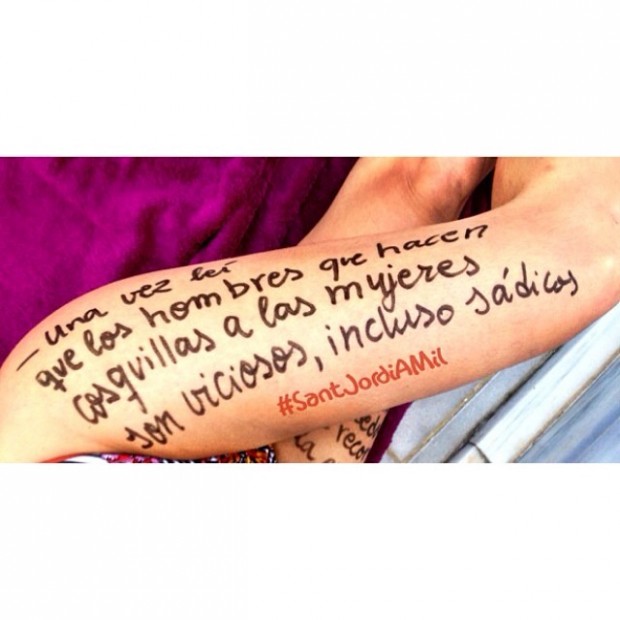 — una vez leí
que los hombres que hacen
cosquillas a las mujeres
son viciosos, incluso sádicos
#SantJordiAMil
la